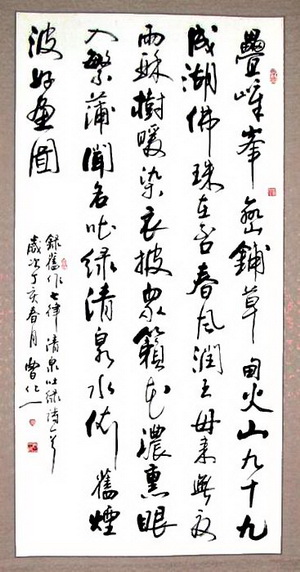 疊嶂峯巒鋪草甸火山九十九
成湖佛珠在否春風潤王母來無夜
雨酥樹暖染衣披眾籟花濃熏眼
入繁蒲聞名吐綠清泉水依舊煙
波好畫圖
錄舊作七律清泉吐綠詩一首
歲次丁亥春月